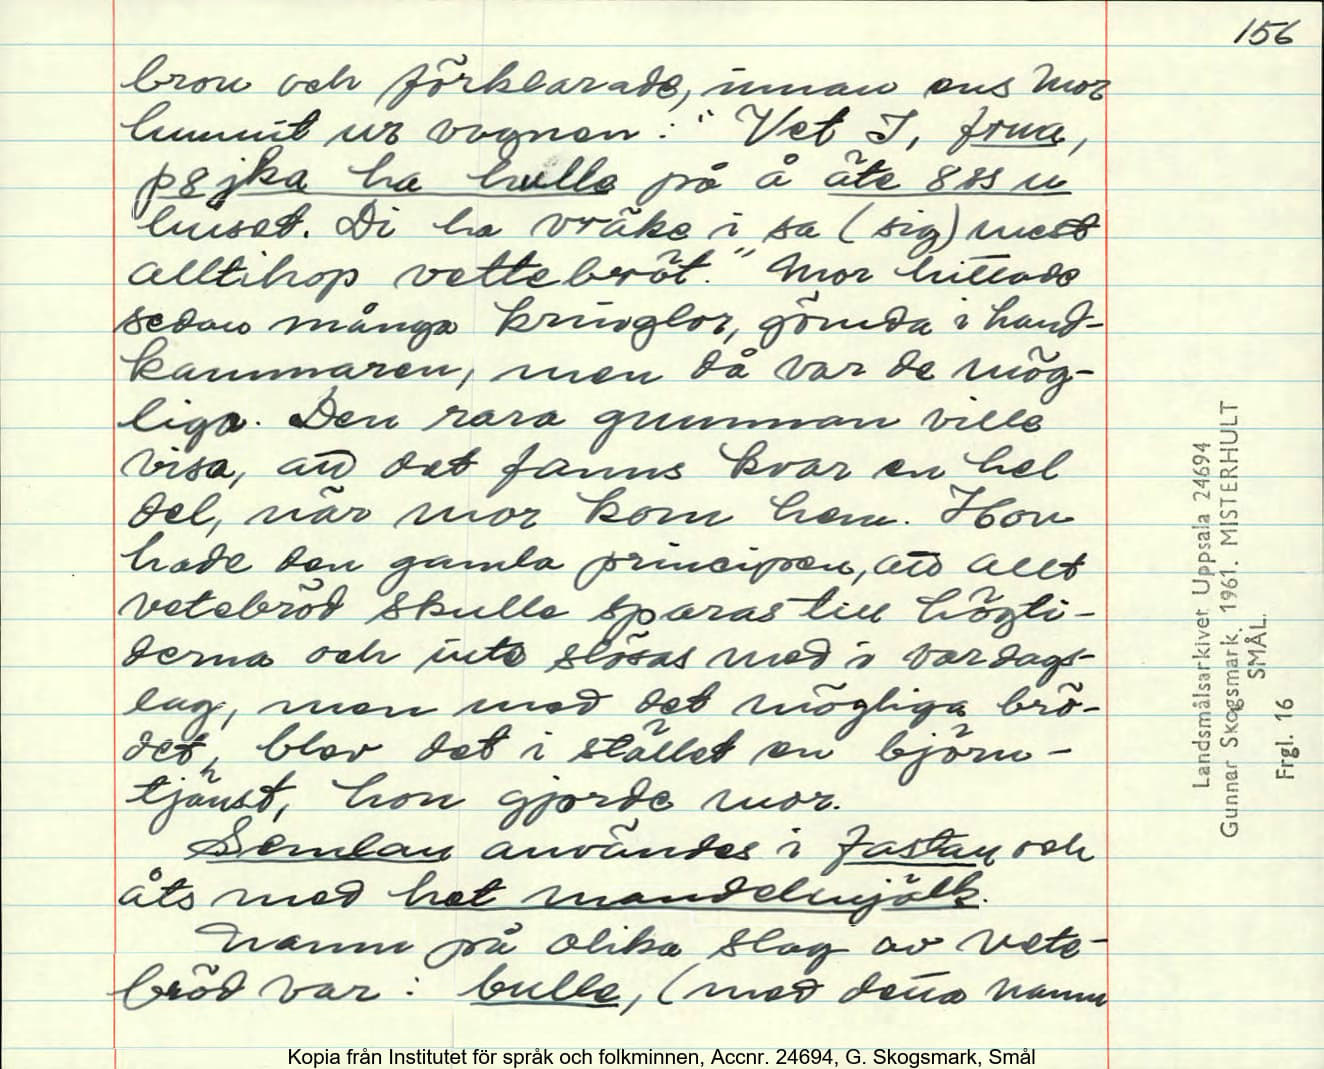 156
bron och förklarade, innan ens mor
hunnit ur vagnen: "Vet I, frua,
p8jka ha hulle på å äte 8ss u
huset. Di ha vräke i sa (sig) mest
alltihop vettebröt." Mor hittade
sedan många kringlor, gömda i hand-
kammaren, men då var de mög-
liga. Den rara gumman ville
visa, att det fanns kvar en hel
del, när mor kom hem. Hon
hade den gamla principen, att allt
vetebröd skulle sparas till högti-
derna och inte slösas med i vardags-
lag, men med det mögliga brö-
det, blev det i stället en björn-
tjänst, hon gjorde mor.
Semlan användes i fastan och
åts med het mandelmjölk.
Namn på olika slag av vete-
bröd var: bulle, (med detta namn
Landsmålsarkivet Uppsala 24694
Gunnar Skogsmark. 1961. MISTERHULT
SMÅL.
Frgl. 16
Kopia från Institutet för språk och folkminnen, Accnr. 24694, G. Skogsmark, Smål